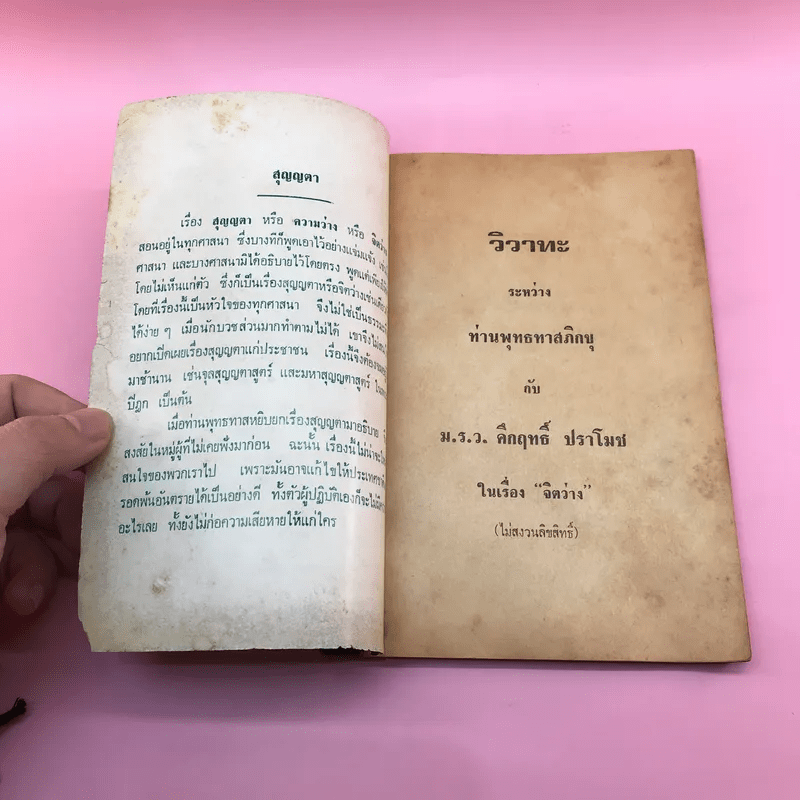 สุญญตา
เรื่อง สุญญตา หรือ ความว่าง หรือ
สอนอยู่ในทุกศาสนา ซึ่งบางทีก็พูดเอาไว้อย่างแจ่มแจ้ง
ศาสนา และบางศาสนามิได้อธิบายไว้โดยตรง
โดยไม่เห็นแก่ตัว ซึ่งก็เป็นเรื่องสุญญตาหรือจิตว่างเช่น
โดยที่เรื่องนี้เป็นหัวใจของทุกศาสนา จึงไม่ใช่เป็น
ได้ง่าย ๆ เมื่อนักบวชส่วนมากทำตามไม่ได้ เขาจึงไม่
อยากเปิดเผยเรื่องสุญญตาแก่ประชาชน เรื่องนี้จึงต้อง
มาช้านาน เช่นจุลสุญญตาสูตร์ และมหาสุญญตาสูตร์
ปิฎก เป็นต้น
เมื่อท่านพุทธทาสหยิบยกเรื่องสุญญตามาอธิบาย
สงสัยในหมู่ผู้ที่ไม่เคยฟังมาก่อน ฉะนั้น เรื่องนี้ไม่น่าจะ
สนใจของพวกเราไป เพราะมันอาจแก้ไขให้ประเทศ
รอดพ้นอันตรายได้เป็นอย่างดี ทั้งตัวผู้ปฏิบัติเองก็จะไม่
อะไรเลย ทั้งยังไม่ก่อความเสียหายให้แก่ใคร
วิวาทะ
ระหว่าง
ท่านพุทธทาสภิกขุ
กับ
ม.ร.ว. คึกฤทธิ์ ปราโมช
ในเรื่อง “จิตว่าง”
(ไม่สงวนลิขสิทธิ์)